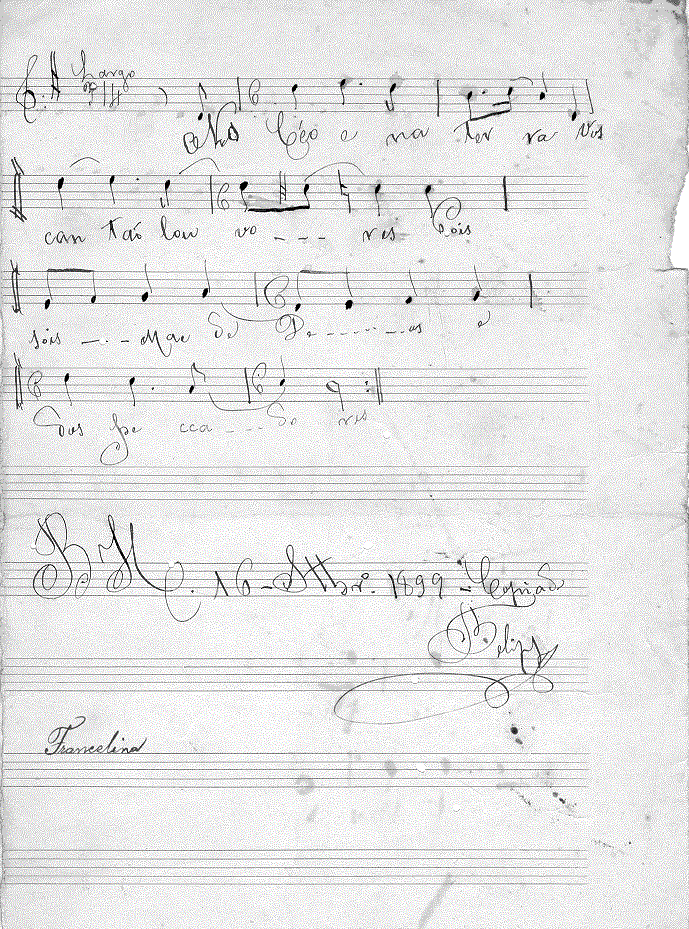 Largo
No Céo e na ter ra Vos
can tão lou vo --- res Cois
sois --- Mãe de De ------ us e
Dos pe cca --- Do res
16 - 1899 - Copiado
Felipe
Francelina